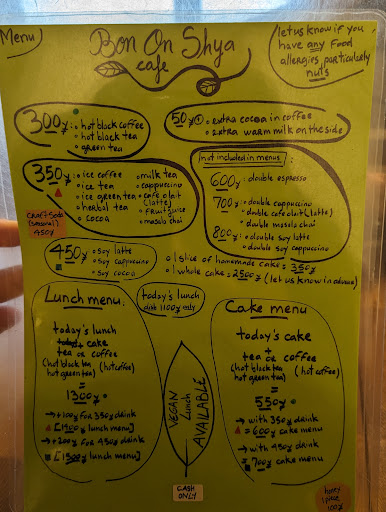 Menu
Bon On Shya
cafe
let us know if you
have any food
allergies, particularly
nuts
300y: • hot black coffee
• hot black tea
• green tea
50y: • extra cocoa in coffee
• extra warm milk on the side
350y: • ice coffee
• ice tea
• ice green tea
• herbal tea
• cocoa
• milk tea
• cappuccino
• cafe o lait
(latte)
• fruit juice
• masala chai
Craft Soda
(seasonal)
450y
(not included in menus):
600y: • double espresso
700y: • double cappuccino
• double cafe o lait (latte)
• double masala chai
800y: • double soy latte
• double soy cappuccino
450y: • soy latte
• soy cappuccino
• soy cocoa
• 1 slice of homemade cake = 350y
• 1 whole cake = 2500y (let us know in advance)
Lunch menu:
today's lunch
+ cake
tea or coffee
(hot black tea (hot coffee)
hot green tea)
=
1300y
→ +100y for 350y drink
[1400y lunch menu]
→ +200y for 450y drink
[1500y lunch menu]
today's lunch
dish 1100y only
VEGAN
Lunch
AVAILABLE
CASH
ONLY
Cake menu
today's cake
+
tea or coffee
(hot black tea (hot coffee)
hot green tea)
=
550y
→ with 350y drink
= 600y cake menu
→ with 450y drink
= 700y cake menu
1 piece
100y